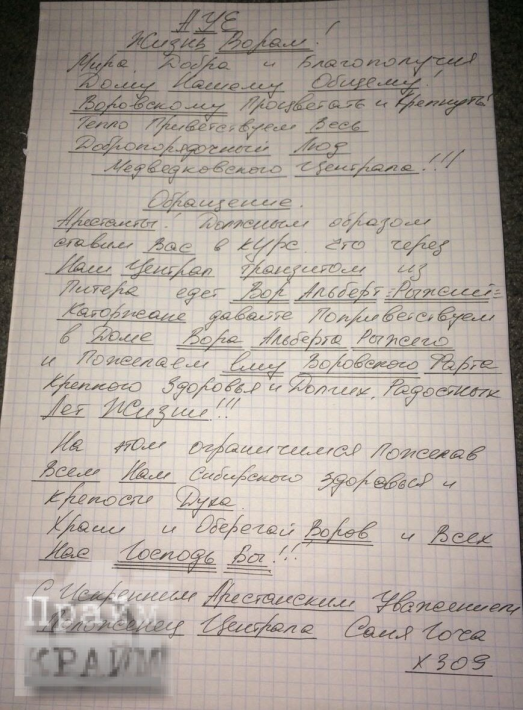 АУЕ
Жизнь Ворам!
Мира Добра и Благополучия
Дому Нашему Общему!
Воровскому Процветать и Крепнуть!
Тепло Приветствуем Весь
Добропорядочный Люд
Медведковского Централа!!!
Обращение.
Арестанты! Должным образом
ставим Вас в курс что через
Наш Централ транзитом из
Питера едет Вор Альберт "Рыжий"
Каторжане давайте Поприветствуем
в Доме Вора Альберта Рыжего
и Пожелаем ему Воровского Фарта
Крепкого Здоровья и Долгих, Радостных
Лет Жизни!!!
На этом ограничимся Пожелав
Всем Нам Сибирского здоровья и
Крепости Духа.
Храни и Оберегай Воров и Всех
Нас Господь Бог!!!
С Искренним Арестанским Уважением
Положенец Централа Саня Гоча
х 309
Прайм
КРАЙМ